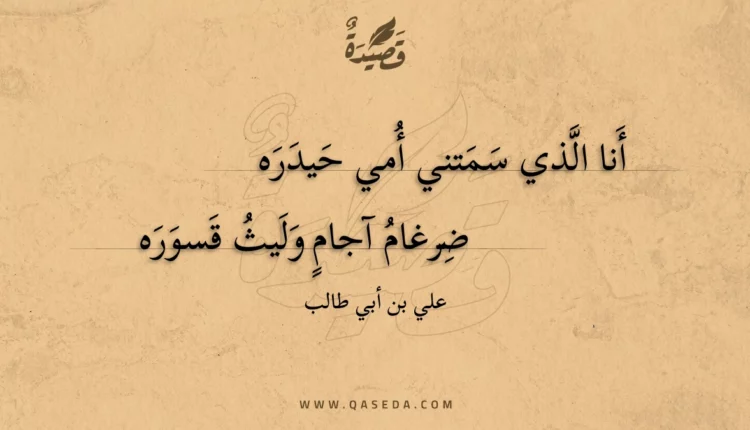 قَصِيْدَةٌ
أَنا الَّذي سَمَتني أُمي حَيدَرَه
ضِرغامُ آجامٍ وَلَيثُ قَسوَرَه
علي بن أبي طالب
WWW.QASEDA.COM